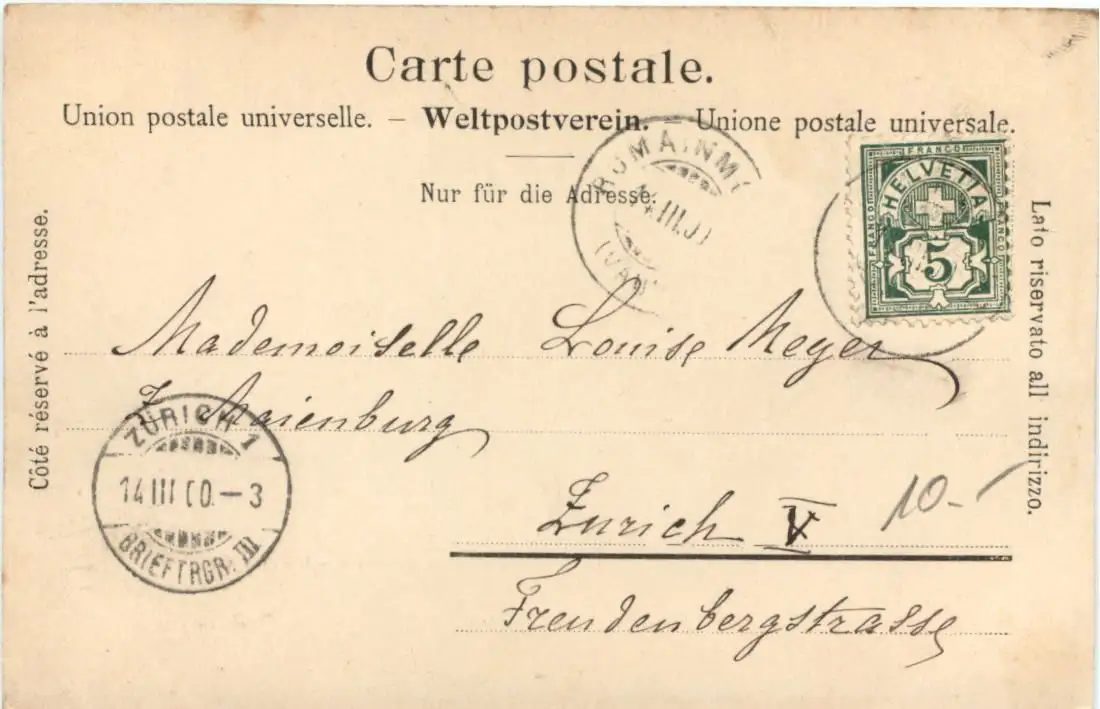 Carte postale.
Union postale universelle. – Weltpostverein. – Unione postale universale.
Nur für die Adresse.
Côté réservé à l'adresse.
Lato riservato all' indirizzo.
ROMAINM
III
FRANCO
FRANCO
FRANCO
HELVETIA
5
Mademoiselle Louise Meyer
Maienburg
ZÜRICH 1
14 III 00.–3
BRIEFTRGR. III
Zurich V
10.-
Freudenbergstrasse